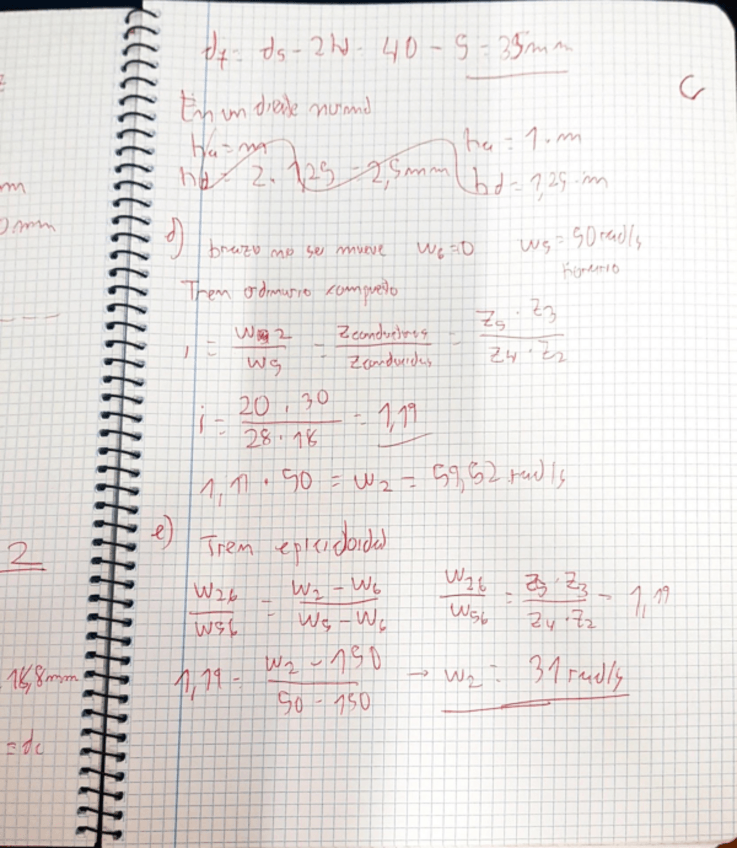 df = ds - 2hd = 40 - 5 = 35mm
C
En un diente normal
ha = m
ha = 1·m
hd = 2·1,25 = 2,5mm
hd = 1,25·m
d) brazo no se mueve w6=0 w5 = 50rad/s
horario
Tren ordinario compuesto
i = w2/w5 = Zconductoras/Zconducidas = Z5·Z3/Z4·Z2
i = 20·30/28·18 = 1,19
1,19·50 = w2 = 59,52 rad/s
e) Tren epicicloidal
w26/w56 = w2-w6/w5-w6
w26/w56 = Z5·Z3/Z4·Z2 = 1,19
1,19 = w2-150/50-150 → w2 = 31rad/s
m
0mm
2
18,8mm
=dc